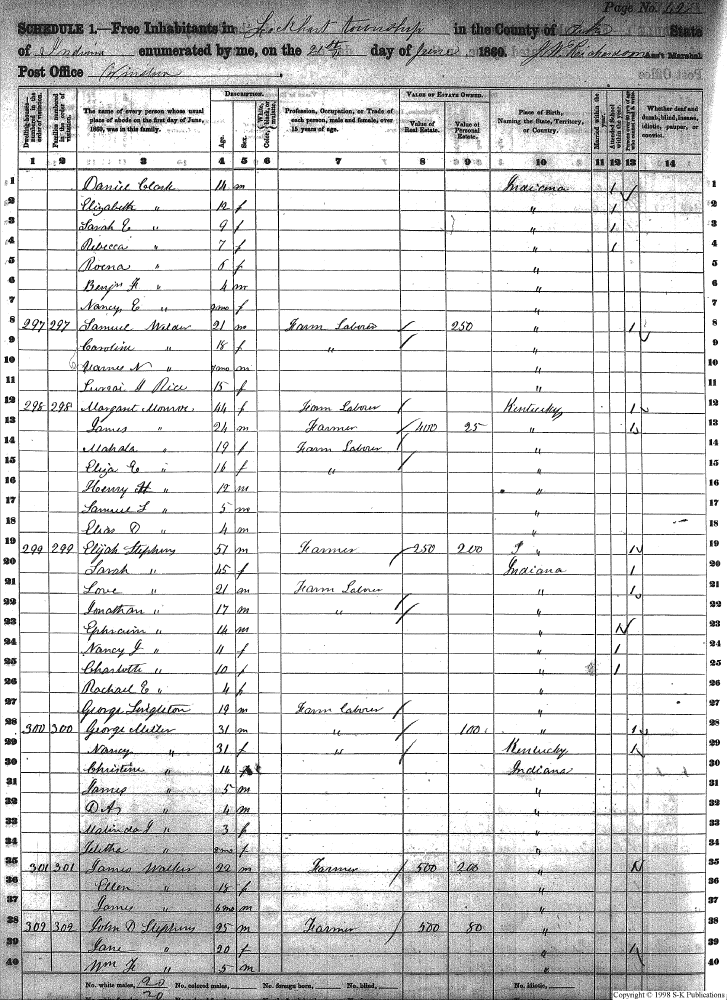 Page No.
SCHEDULE 1.—Free Inhabitants in Lockhart township in the County of Pike State
of Indiana enumerated by me, on the 25th day of June 1860. J. W. Richardson Ass't Marshal
Post Office Winslow
Dwelling-houses—numbered in the order of visitation. Families numbered in the order of visitation. The name of every person whose usual place of abode on the first day of June, 1860, was in this family. DESCRIPTION. Age. Sex. Color, White, black, or mulatto. Profession, Occupation, or Trade of each person, male and female, over 15 years of age. VALUE OF ESTATE OWNED. Value of Real Estate. Value of Personal Estate. Place of Birth, Naming the State, Territory, or Country. Married within the year. Attended School within the year. Persons over 20 y'rs of age who cannot read & write. Whether deaf and dumb, blind, insane, idiotic, pauper, or convict.
1 2 3 4 5 6 7 8 9 10 11 12 13 14
1 Daniel Clark 14 m Indiana / 1
2 Elizabeth " 12 f " / 2
3 Sarah E " 9 f " / 3
4 Rebecca " 7 f " / 4
5 Roena " 6 f " 5
6 Benj'n F " 4 m " 6
7 Nancy E " f " 7
8 297 297 Samuel 21 m Farm Laborer 250 " / 8
9 Caroline " 18 f " " 9
10 James N " m " 10
11 H Rice 15 f " 11
12 298 298 Margaret Monroe 44 f Farm Laborer Kentucky 1 12
13 James " 24 m Farmer 400 25 " 1 13
14 Mahala " 19 f Farm Laborer " 14
15 Eliza E " 16 f " " 15
16 Henry H " 12 m " 16
17 Samuel L " 5 m " 17
18 Elias D " 4 m " 18
19 299 299 Elijah Stephens 57 m Farmer 250 200 " 1 19
20 Sarah " 45 f Indiana 1 20
21 Love " 21 m Farm Laborer " 1 21
22 Jonathan " 17 m " " 22
23 Ephraim " 14 m " 1 23
24 Nancy J " 11 f " 1 24
25 Charlotte " 10 f " 1 25
26 Rachael E " 4 f " 26
27 George Singleton 19 m Farm Laborer " 27
28 300 300 George Miller 31 m " 100 " 1 28
29 Nancy " 31 f " Kentucky 1 29
30 Christine " 14 f Indiana 30
31 James " 5 m " 31
32 D A " 4 m " 32
33 Malinda J " 3 f " 33
34 " f " 34
35 301 301 James Walker 22 m Farmer 500 200 " 1 35
36 Ellen " 18 f " 36
37 James " 6mo m " 37
38 302 302 John D Stephens 25 m Farmer 500 80 " 38
39 Jane " 20 f " 1 39
40 Wm F " 5 m " 40
No. white males, 20 No. colored males, No. foreign born, No. blind, No. idiotic,
20
Copyright © 1998 S-K Publications